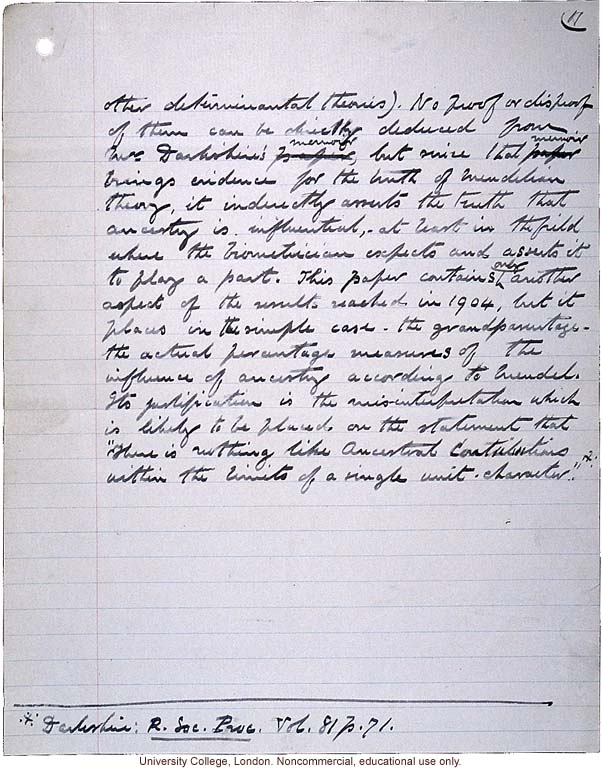 11
other determinantal theories). No proof or disproof
of them can be directly deduced from
Mr. Darbishire's paper memoir, but since that paper memoir
brings evidence for the truth of Mendelian
theory, it indirectly asserts the truth that
ancestry is influential,- at least in the field
where the biometrician expects and asserts it
to play a part. This paper contains only another
aspect of the results reached in 1904, but it
places in the simple case - the grandparentage -
the actual percentage measures of the
influence of ancestry according to Mendel.
Its justification is the misinterpretation which
is likely to be placed on the statement that
"There is nothing like Ancestral Contributions
within the limits of a single unit-character".*
* Darbishire: R. Soc. Proc. Vol. 81 p. 71.
University College, London. Noncommercial, educational use only.